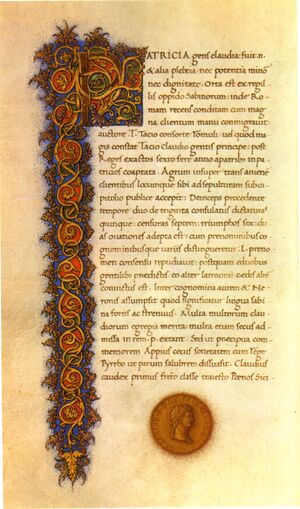 PATRICIA gens claudia: fuit .n.
& alia plebeia. nec potentia minor
nec dignitate. Orta est ex regil
lis oppido Sabinorum. inde Ro
mam recens conditam cum mag
na clientum manu conmigravit
auctore .T. Tacio consorte Romuli. vel quod ma
gis constat Tacio Claudio gentis principe. post
Reges exactos sexto fere anno a patribus in pa
tricios cooptata. Agrum insuper trans aniene
clientibus locumque sibi ad sepulturam sub ca
pitolio publice accepit. Deinceps procedente
tempore duo de triginta consulatus. dictaturas
quinque. censuras septem. triumphos sex. du
as ovationes adepta est. cum prenominibus co
gnominibusque variis distingueretur. L. preno
men consensu repudiavit. postquam e duobus
gentilibus preditis eo alter latrocinii. cedis alter
convictus est. Inter cognomina autem & Ne
ronis assumpsit quod significatur lingua sabi
na fortis ac strenuus. Multa multorum clau
diorum egregia merita. multa etiam secus ad
missa in rem .p. extant. Sed ut precipua com
memorem. Appius cecus societatem cum rege
Pyrrho ut parum salubrem dissuasit. Claudius
caudex primus freto classe traiecto Poenos Sici